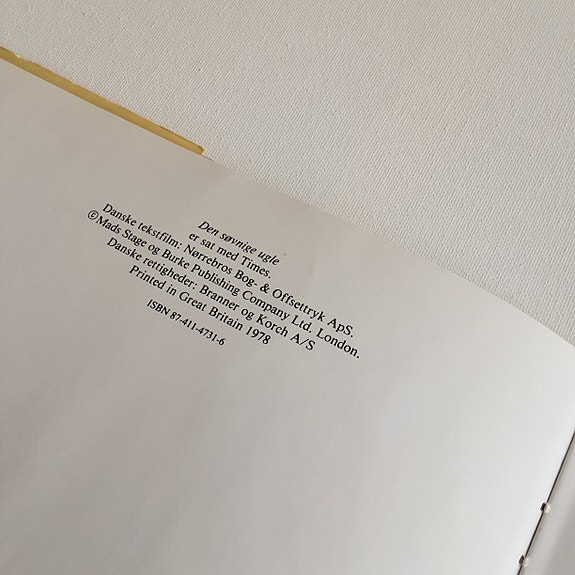 Den søvnige ugle
er sat med Times.
Danske tekstfilm: Nørrebros Bog- & Offsettryk ApS.
©Mads Stage og Burke Publishing Company Ltd. London.
Danske rettigheder: Branner og Korch A/S
Printed in Great Britain 1978
ISBN 87-411-4731-6